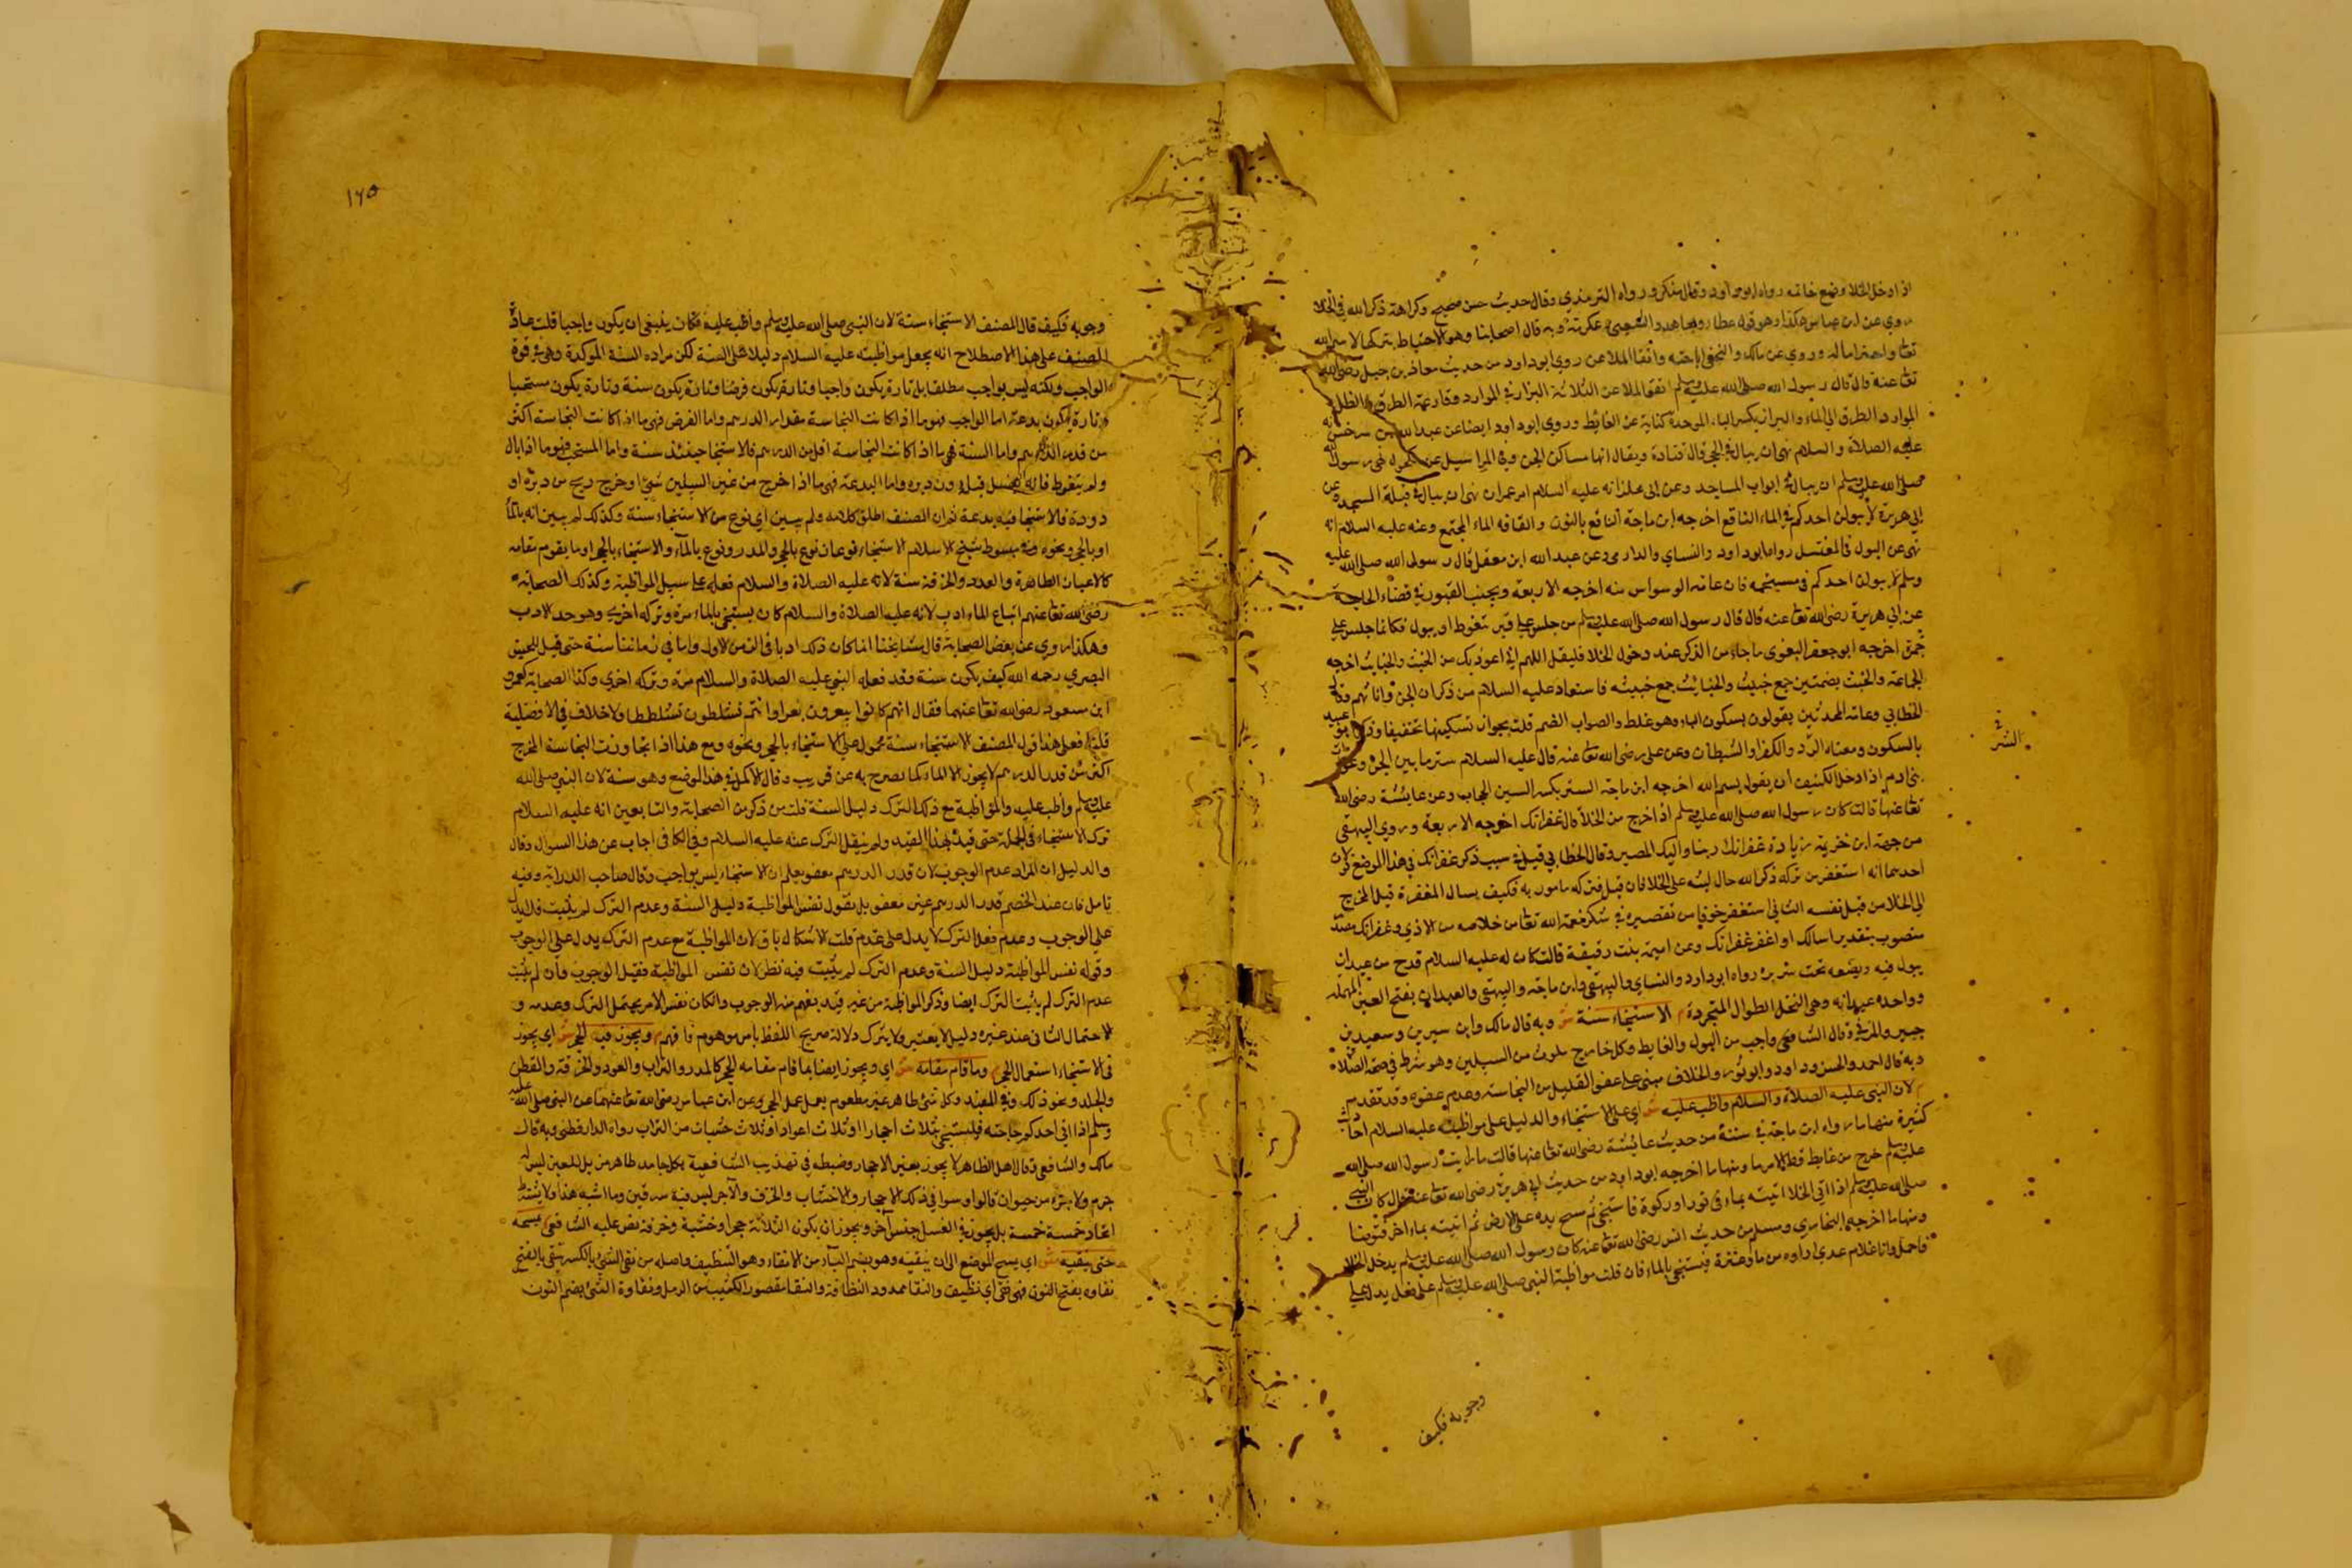 اذا دخل الخلا وضع خاتمه رواه ابو داود وقال منكر ورواه الترمذي وقال حديث حسن صحيح وكراهة ذكر الله في الخلا
روي عن ابن عباس هكذا وهو قول عطا ومجاهد والشعبي وعكرمة وبه قال اصحابنا وهو الاحتياط بتركها لاسم الله
تعا واحتراما له وروي عن مالك والنخعي اباحته واتقا الملاعن روي ابو داود من حديث معاذ بن جبل رضي الله
تعا عنه قال قال رسول الله صلى الله عليه وسلم اتقوا الملاعن الثلاثة البراز في الموارد وقارعة الطرق والظل
الموارد الطرق الي الماء والبراز بكسر الباء الموحدة كناية عن الغائط وروي ابو داود ايضا عن عبد الله بن سرخس
عليه الصلاة والسلام نهى ان يبال في الجحر قال قتادة ويقال انها مساكن الجن وفي المراسيل عن مكحول نهى رسول
صلى الله عليه وسلم ان يبال في ابواب المساجد وعن ابي مجلز انه عليه السلام امر عمر ان ينهى ان يبال في قبلة المسجد
ابي هريرة لا يبولن احدكم في الماء الناقع اخرجه ابن ماجة الناقع بالنون والقاف الماء المجتمع وعنه عليه السلام انه
نهى عن البول في المغتسل رواه ابو داود والنساي والدارمي وعن عبد الله ابن مغفل قال رسول الله صلى الله عليه
وسلم لا يبولن احدكم في مستحمه فان عامة الوسواس منه اخرجه الاربعة ويجتنب القبور في قضاء الحاجة
عن ابي هريرة رضى الله تعا عنه قال قال رسول الله صلى الله عليه وسلم من جلس على قبر تغوط او يبول فكانما جلس على
جمرة اخرجه ابو جعفر البغوي ما جاء من الذكر عند دخول الخلا فليقل اللهم اني اعوذ بك من الخبث والخبايث اخرجه
الجماعة والخبث بضمتين جمع خبيث والخبائث جمع خبيثه فاستعاذ عليه السلام من ذكران الجن واناثهم
الخطابي وعامة المحدثين يقولون بسكون الباء وهو غلط والصواب الضم قلت يجوز تسكينها تخفيفا
بالسكون ومعناه الرد والكفر او الشيطان وعن علي رضى الله تعا عنه قال عليه السلام ستر ما بين الجن
بني ادم اذا دخل الكنيف ان يقول بسم الله اخرجه ابن ماجة الستر بكسر السين الحجاب وعن عائشة رضى الله
تعا عنها قالت كان رسول الله صلى الله عليه وسلم اذا خرج من الخلا قال غفرانك اخرجه الاربعة وروي البيهقي
من جهة ابن خزيمة زيادة غفرانك ربنا واليك المصير وقال الخطابي قيل في سبب ذكر غفرانك في هذا الموضع
احدهما انه استغفر من تركه ذكر الله حال لبثه على الخلا فان قيل فتركه مامور به فكيف يسال المغفرة قيل المخرج
الي الخلا من قبل نفسه الثاني استغفر خوفا من تقصيره في شكر نعمة الله تعا من خلاصه من الاذي وغفرانك
منصوب بتقدير اسالك او اغفر غفرانك وعن اميمة بنت رقيقة قالت كان له عليه السلام قدح من عيدان
يبول فيه ويضعه تحت سريره رواه ابو داود والنساي والبيهقي وابن ماجة والعيدان بفتح العين المهملة
وواحده عيدانه وهي النخل الطوال المتجردة م الاستنجاء سنة ش وبه قال مالك وابن سيرين وسعيد بن
جبير والمزني وقال الشافعي واجب من البول والغايط وكل خارج ملوث من السبيلين وهو شرط في صحة الصلاة
وبه قال احمد والحسن وداود وابو ثور والخلاف مبني على عفو القليل من النجاسة وعدم عفوه وقد تقدم
م لان النبي عليه الصلاة والسلام واظب عليه ش اي على الاستنجاء والدليل على مواظبته عليه السلام احاديث
كثيرة منها ما رواه ابن ماجة في سننه من حديث عائشة رضى الله تعا عنها قالت ما رايت رسول الله صلى الله
عليه وسلم خرج من غايط قط الا مس ما ومنها ما اخرجه ابو داود من حديث ابي هريرة رضى الله تعا عنه قال كان النبي
صلى الله عليه وسلم اذا اتي الخلا اتيته بماء في تور او ركوة فاستنجى ثم مسح يده على الارض ثم اتيته بماء اخر فتوضا
ومنها ما اخرجه البخاري ومسلم من حديث انس رضى الله تعا عنه كان رسول الله صلى الله عليه وسلم يدخل الخلا
فاحمل وانا غلام عدي اداوه من ماء وعنزة فيستنجي بالماء فان قلت مواظبة النبي صلى الله عليه وسلم على فعل يدل على
وجوبه فكيف
١٦٥
وجوبه فكيف قال المصنف الاستنجاء سنة لان النبي صلى الله عليه وسلم واظب عليه فكان ينبغي ان يكون واجبا قلت عادة
المصنف على هذا الاصطلاح انه يجعل مواظبته عليه السلام دليلا على السنة لكن مراده السنة الموكدة وهي في قوة
الواجب ولكنه ليس بواجب مطلقا بل تارة يكون واجبا وتارة يكون فرضا وتارة يكون سنة وتارة يكون مستحبا
وتارة يكون بدعة اما الواجب فهو ما اذا كانت النجاسة مقدار الدرهم واما الفرض فهي ما اذا كانت النجاسة اكثر
من قدر الدرهم واما السنة فهي ما اذا كانت النجاسة اقل من الدرهم فالاستنجا حينئذ سنة واما المستحب فهو ما اذا بال
ولم يتغوط فانه يغسل قبله دون دبره واما البدعة فهي ما اذا خرج من غير السبيلين شيء او خرج ريح من دبره او
دودة فالاستنجا فيه بدعة ثم ان المصنف اطلق كلامه ولم يبين اي نوع من الاستنجاء سنة وكذلك لم يبين انه بالماء
او بالحجر ونحوه وفي مبسوط شيخ الاسلام الاستنجاء نوعان نوع بالحجر والمدر ونوع بالماء والاستنجاء بالحجر او ما يقوم مقامه
كالاعيان الطاهرة والعدد والخرقة سنة لانه عليه الصلاة والسلام فعله على سبيل المواظبة وكذلك الصحابة
رضى الله تعا عنهم اتباع الماء ادب لانه عليه الصلاة والسلام كان يستنجي بالماء مرة وتركه اخرى وهو حد الادب
وهكذا روي عن بعض الصحابة قال مشايخنا انما كان ذلك ادبا في الزمن الاول واما في زماننا سنة حتى قيل للحسن
البصري رحمه الله كيف يكون سنة وقد فعله النبي عليه السلام مرة وتركه اخرى وكذا الصحابة كعمر و
ابن مسعود رضى الله تعا عنهما فقال انهم كانوا يبعرون بعرا وانتم تثلطون ثلطا ولا خلاف في الافضلية
قلت فعلى هذا قول المصنف الاستنجاء سنة محمول على الاستنجاء بالحجر ونحوه ومع هذا اذا تجاوزت النجاسة المخرج
اكثر من قدر الدرهم لا يجوز الا الماء كما يصرح به عن قريب وقال الاكمل في هذا الموضع وهو سنة لان النبي صلى الله
عليه وسلم واظب عليه والمواظبة مع ذلك الترك دليل السنة قلت من ذكر من الصحابة والتابعين انه عليه السلام
ترك الاستنجاء في الجملة حتى قيد بهذا القيد ولم ينقل الترك عنه عليه السلام وفي الكافي اجاب عن هذا السوال وقال
والدليل ان المراد عدم الوجوب لان قدر الدرهم معفو يعلم ان الاستنجاء ليس بواجب وقال صاحب الدراية وفيه
تامل فان عند الخصم قدر الدرهم غير معفو بل نقول نفس المواظبة دليل السنة وعدم الترك لم يثبت فلا يدل
على الوجوب وعدم فعل الترك لا يدل على عدم قلت الاشكال باق لان المواظبة مع عدم الترك يدل على الوجوب
وقوله نفس المواظبة دليل السنة وعدم الترك لم يثبت فيه نظر لان نفس المواظبة فقيل الوجوب فان لم يثبت
عدم الترك لم يثبت الترك ايضا وذكر المواظبة من غير قيد يفهم منه الوجوب وان كان نفس الامر يحتمل الترك وعدمه و
الاحتمال الثاني عند غيره دليل لا يعتبر ولا يترك دلالة صريح اللفظ بامر موهوم فافهم م ويجوز فيه الحجر ش اي يجوز
في الاستنجاء استعمال الحجر م وما قام مقامه ش اي ويجوز ايضا بما قام مقامه الحجر كالمدر والتراب والعود والخرقة والقطن
والجلد ونحو ذلك وفي المفيد وكل شي طاهر غير مطعوم يعمل عمل الحجر وعن ابن عباس رضي الله تعا عنهما عن النبي صلى الله عليه
وسلم اذا اتى احدكم حاجته فليستنجي بثلاث احجار او ثلاث اعواد او ثلاث حثيات من التراب رواه الدارقطني وبه قال
مالك والشافعي وقال اهل الظاهر لا يجوز بغير الاحجار وضبطه في تهذيب الشافعية بكل جامد طاهر مزيل للعين ليس له
حرم ولا جزء من حيوان قالوا وسوا في ذلك الاحجار والاخشاب والخزف والآجر ليس فيه سرقين وما اشبه هذا ولا يشترط
اتحاد خمسة خمسة بل يجوز في الغسل جنس آخر ويجوز ان يكون الثلاثة حجر او خشبة وخرقة نص عليه الشافعي م يمسحه
حتى ينقيه ش اي يمسح الموضع الي ان ينقيه وهو بضم الياء من الانقاء وهو التنظيف واصله من نقي الشيء بالكسر ينقى بالفتح
نقاوه بفتح النون فهو نقي اي نظيف والنقا ممدود النظافة والنقا مقصور الكثيب من الرمل ونقاوة الشيء بضم النون